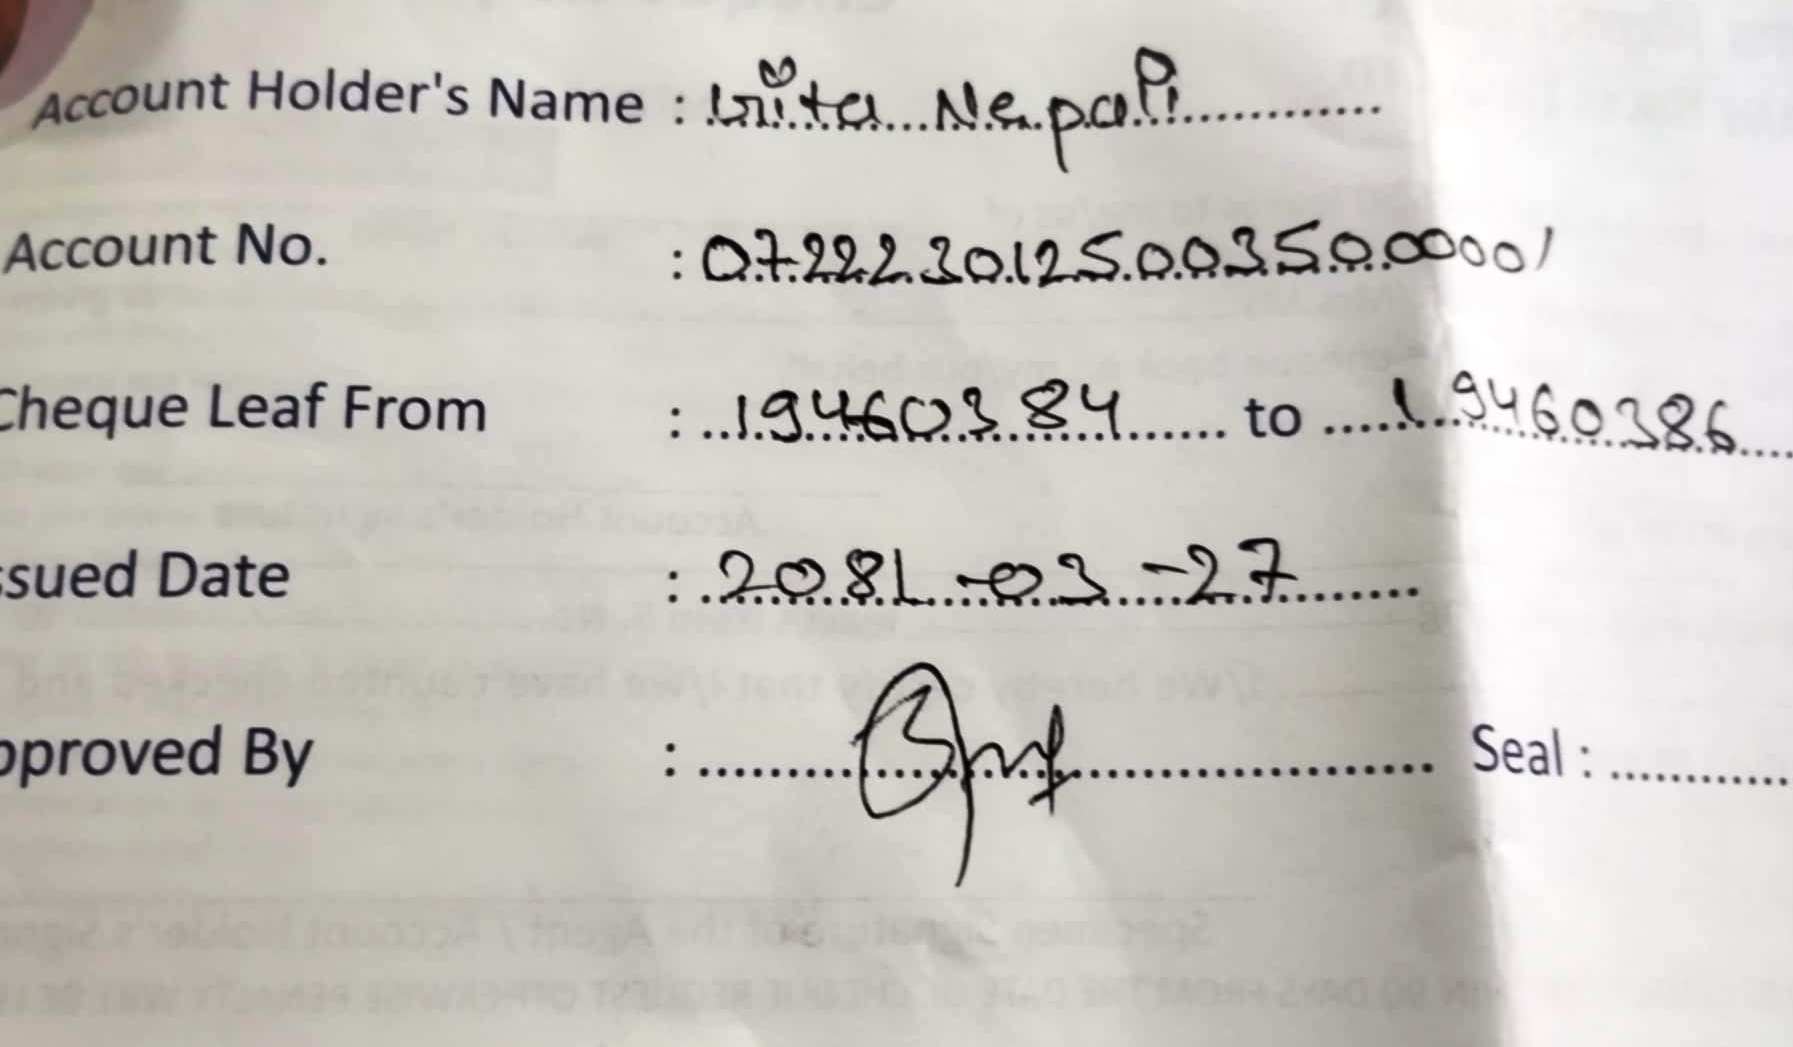 Account Holder's Name : Gita Nepali
Account No. : 07222301250035000001
Cheque Leaf From : 19460384 to 19460386
ssued Date : 2081-03-27
pproved By : Seal :